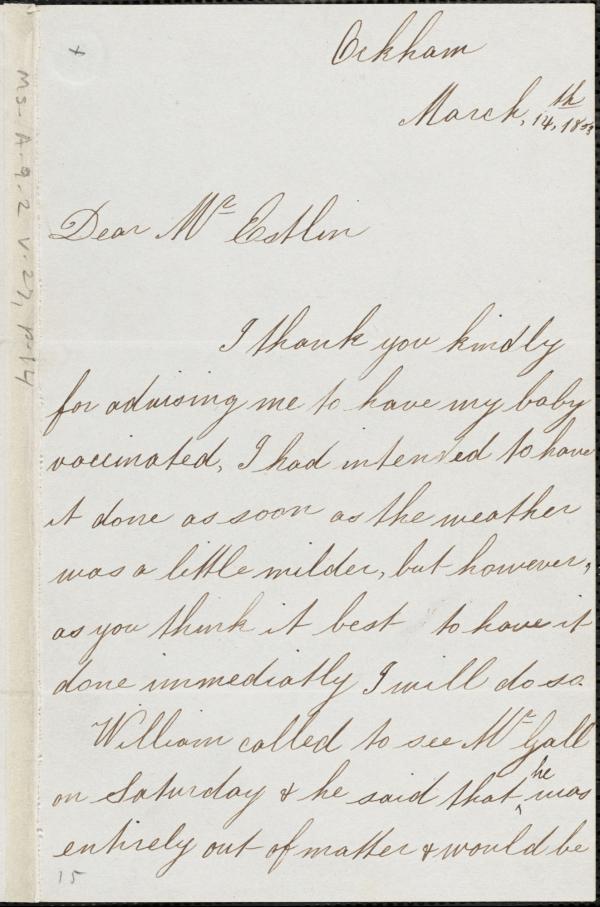 Ockham
March, 14,th 1853
Dear Mr Estlin
I thank you kindly
for advising me to have my baby
vaccinated, I had intended to have
it done as soon as the weather
was a little milder, but however,
as you think it best to have it
done immediatly I will do so.
William called to see Mr Gall
on Saturday & he said that he was
entirely out of matter & would be
15
Ms. A.9.2 v.27, p.14